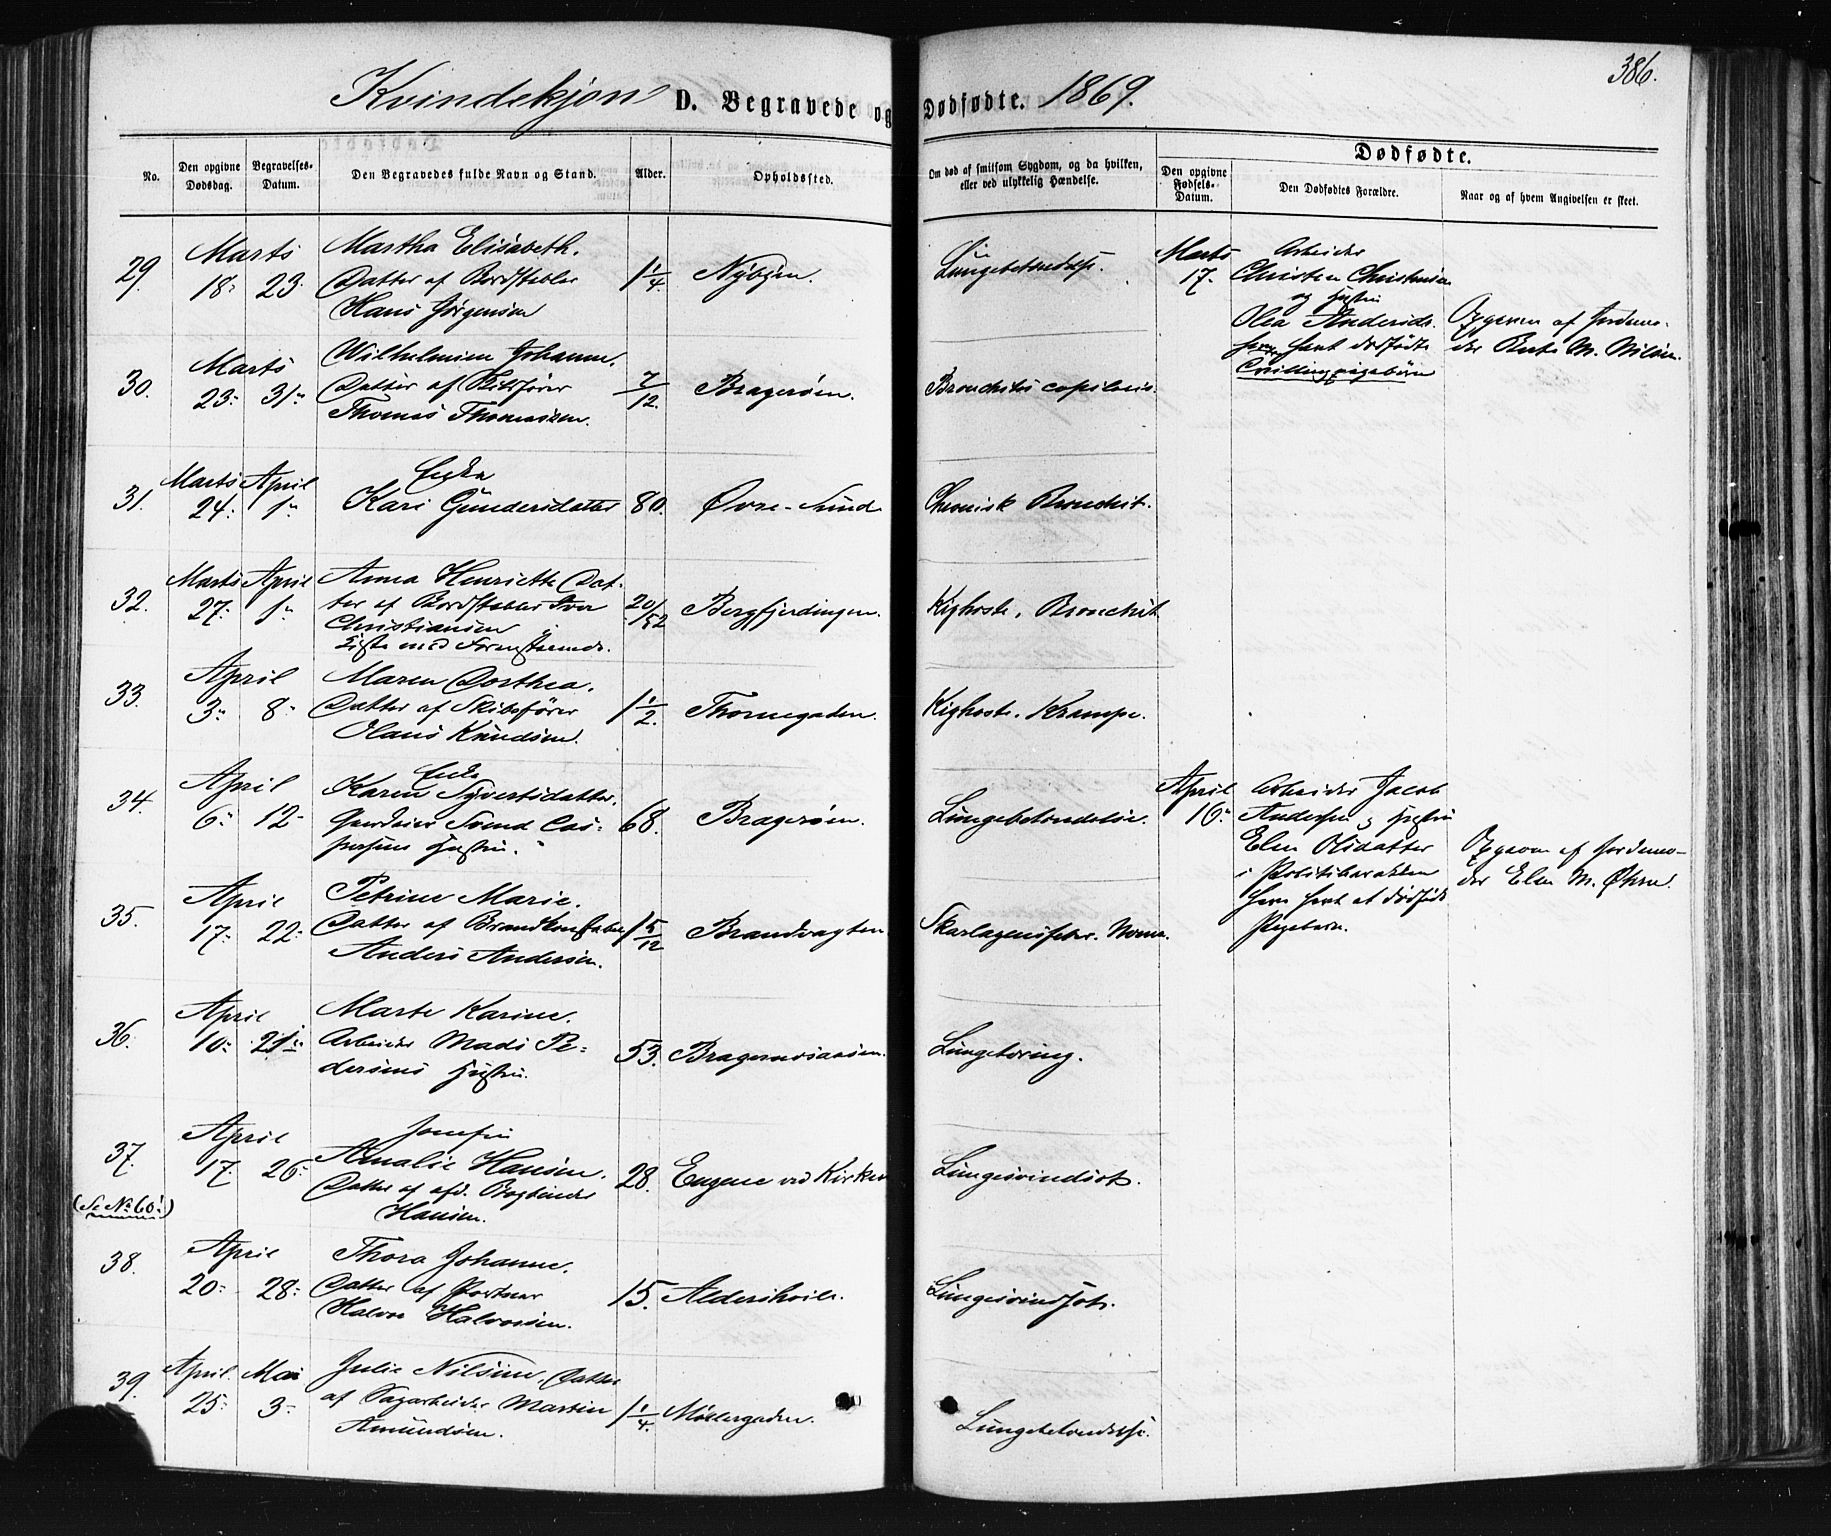 386.
Kvindekjøn D. Begravede og Dødfødte. 1869.
No.
Den opgivne Dødsdag.
Begravelses-Datum.
Den Begravedes fulde Navn og Stand.
Alder.
Opholdssted.
Om død af smitsom Sygdom, og da hvilken,
eller ved ulykkelig Hændelse.
Dødfødte.
Den opgivne Fødsels-Datum.
Den Dødfødtes Forældre.
Naar og af hvem Angivelsen er skeet.
29. Marts 18. 23.
Martha Elisabeth.
Datter af Bordstabler
Hans Jørgensen
1 1/4. Nybyen. Lungebetændelse.
Marts 17.
Arbeider
Christen Christensen
og Hustru
Olea Andersdr.
havt dødfødte
Tvillingpigebørn
Opgiven af Jordemo-
der Berte M. Nilsen.
30. Marts 23. 31.
Wilhelmine Johanne.
Datter af Skibsfører
Thomas Thomassen.
7/12. Bragerøen. Bronchitis capilaris.
31. Marts 24. April 1.
Enke
Kari Gundersdatter
80. Øvre-Sund Chronisk Bronchit.
32. Marts 27. April 1.
Anna Henriette Dat-
ter af Bordstabler Iver
Christiansen
Liste med
20/52 Bergfjerdingen. Kighoste, Bronchit
33. April 3. 8.
Maren Dorthea.
Datter af Skibsfører
Olaus Knudsen.
1 1/2. Thornegaden. Kighoste. Krampe.
34. April 6. 12.
Enke
Karen Syvertsdatter.
Gaardeier Svend Cas-
persens Hustru.
68. Bragerøen. Lungebetændelse.
April 16.
Arbeider Jacob
Andersen og Hustru
Elen Olsdatter
i Politibarakken
have havt et dødfødt
Pigebarn.
Opgiven af Jordemo-
der Elen M. Øhrn.
35. April 17. 22.
Petrine Marie.
Datter af Brandkonstabel
Anders Andersen.
1 5/12 Brandvagten Skarlagensfeber. Noma.
36. April 10. 21.
Marte Karine.
Arbeider Mads Pe-
dersens Hustru.
53. Bragernesaasen. Lungetæring.
37. April 17. 26.
(Se No 60!)
Jomfru
Amalie Hansen.
Datter af afd. Bogbinder
Hansen.
28. Engene ved Kirken Lungesvindsot.
38. April 20. 28.
Thora Johanne.
Datter af Portner
Halvor Halvorsen.
15. Aldershvile. Lungesvindsot.
39. April 25. Mai 3.
Julie Nilsine, Datter
af Sagarbeider Martin
Amundsen.
1 1/4. Møllergaden. Lungebetændelse.